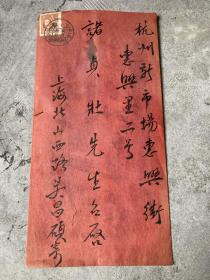 杭州新市場惠興街
惠興里二号
諸貞壯先生台啓
上海北山西路吴昌碩寄